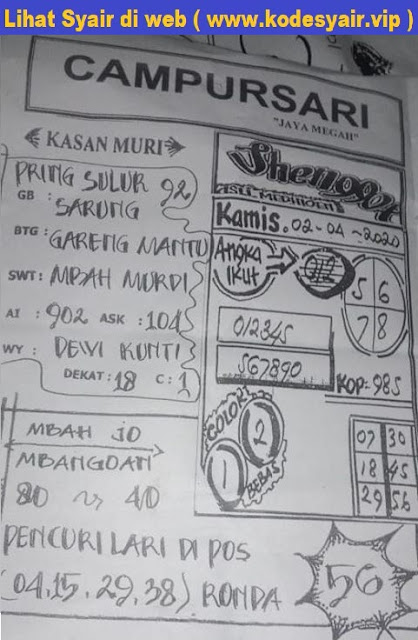 Lihat Syair di web ( www.kodesyair.vip )
CAMPURSARI
"JAYA MEGAH"
KASAN MURI
PRING SULUR 92
GB : SARUNG
BTG : GARENG MANTU
SWT : MBAH MURDI
AI : 902 ASK : 104
WY : DEWI KUNTI
DEKAT : 18 C : 1
MBAH JO
MBANGDAN
80 40
PENCURI LARI DI POS
(04, 15, 29, 38) RONDA
56
ASLI
Kamis. 02-04-2020
ANGKA IKUT
5 6
7 8
012345
567890
KOP = 985
COLOK
1 2
BEBAS
07 30
18 45
29 56